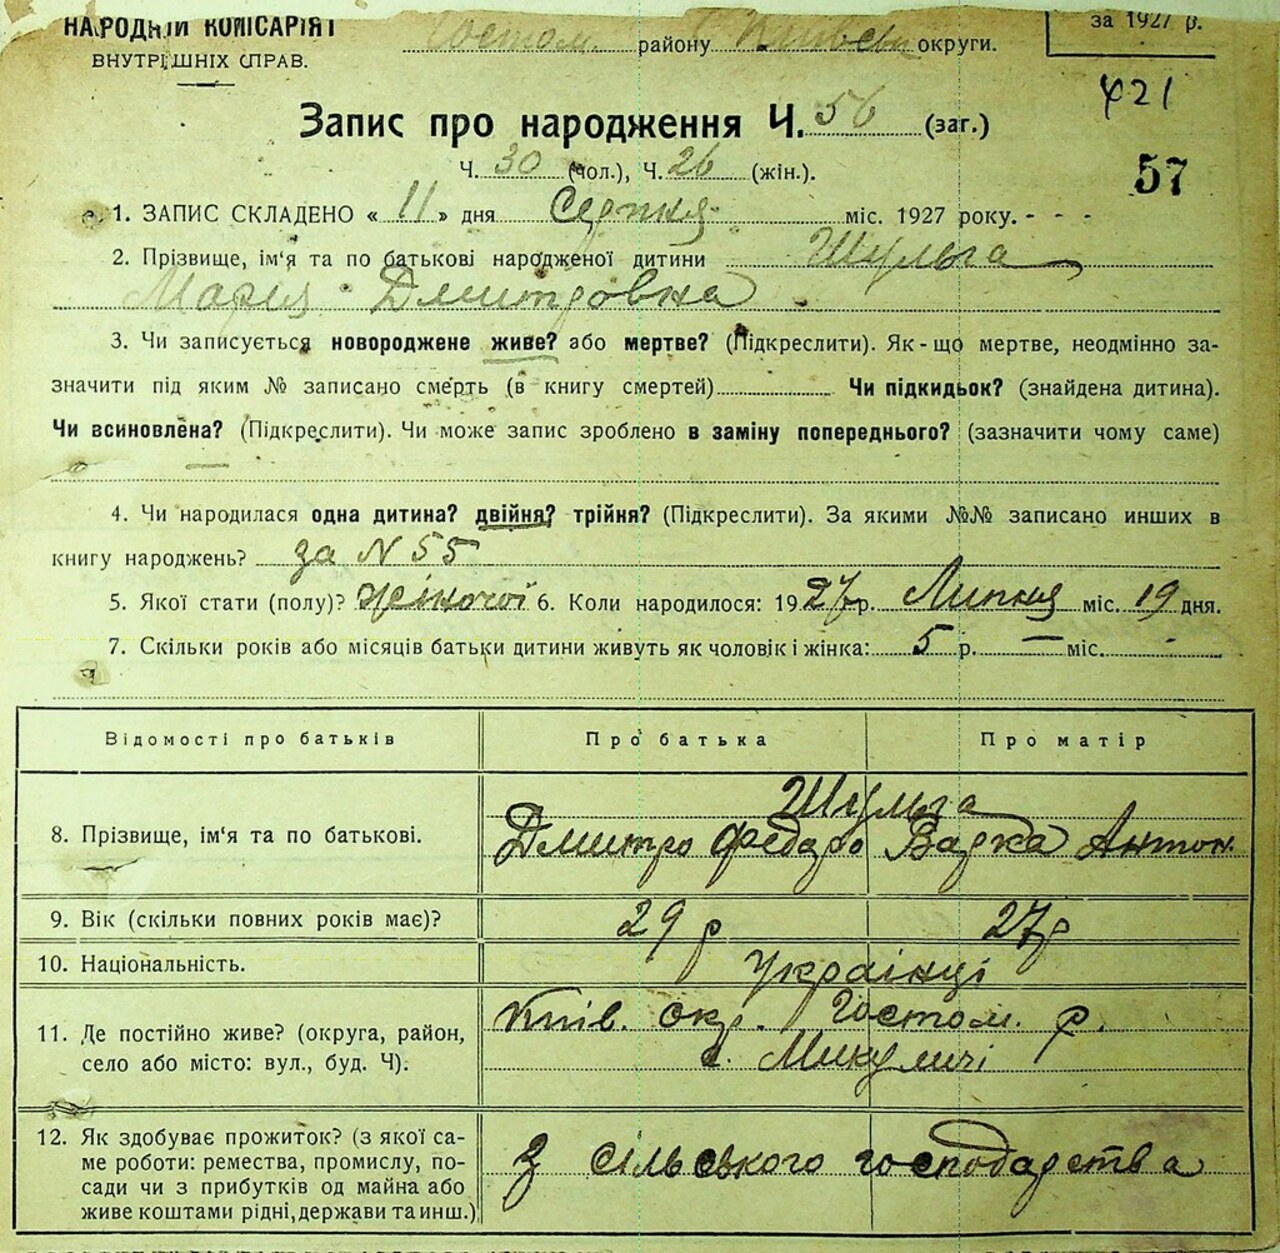 НАРОДНІЙ КОМІСАРІЯТ
ВНУТРІШНІХ СПРАВ.
Гостом. району Київськ округи.
за 1927 р.
421
Запис про народження Ч. 56 (заг.)
Ч. 30 (чол.), Ч. 26 (жін.).
57
1. ЗАПИС СКЛАДЕНО « 11 » дня Серпня міс. 1927 року. - - -
2. Прізвище, ім'я та по батькові народженої дитини Шульга
Мария Дмитровна
3. Чи записується новороджене живе? або мертве? (Підкреслити). Як-що мертве, неодмінно за-
значити під яким № записано смерть (в книгу смертей) Чи підкидьок? (знайдена дитина).
Чи всиновлена? (Підкреслити). Чи може запис зроблено в заміну попереднього? (зазначити чому саме)
—
4. Чи народилася одна дитина? двійня? трійня? (Підкреслити). За якими №№ записано инших в
книгу народжень? за N 55
5. Якої стати (полу)? жіночої 6. Коли народилося: 1927 р. Липня міс. 19 дня.
7. Скільки років або місяців батьки дитини живуть як чоловік і жінка: 5 р. — міс.
Відомості про батьків Про батька Про матір
Шульга
8. Прізвище, ім'я та по батькові. Дмитро Федоро Варка Антон.
9. Вік (скільки повних років має)? 29 р 27 р
10. Національність. Українці
11. Де постійно живе? (округа, район, Київ. окр. Гостом. р.
село або місто: вул., буд. Ч). с. Микуличі
12. Як здобуває прожиток? (з якої са-
ме роботи: ремества, промислу, по- З сільського господарства
сади чи з прибутків од майна або
живе коштами рідні, держави та инш.)